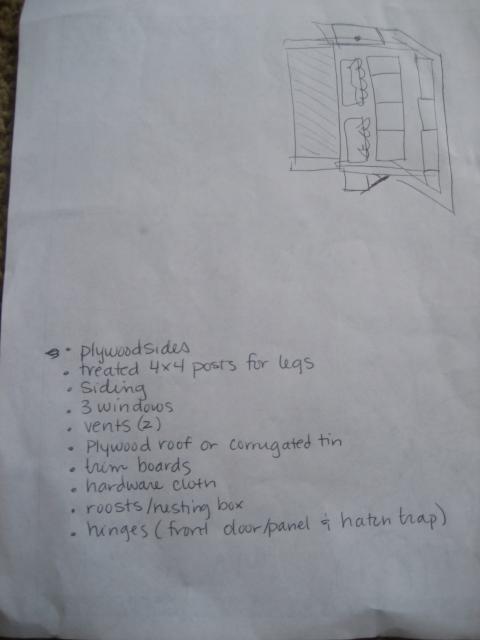 • plywood sides
• treated 4x4 posts for legs
• siding
• 3 windows
• vents (2)
• Plywood roof or corrugated tin
• trim boards
• hardware cloth
• roosts/nesting box
• hinges (front door/panel & hatch trap)